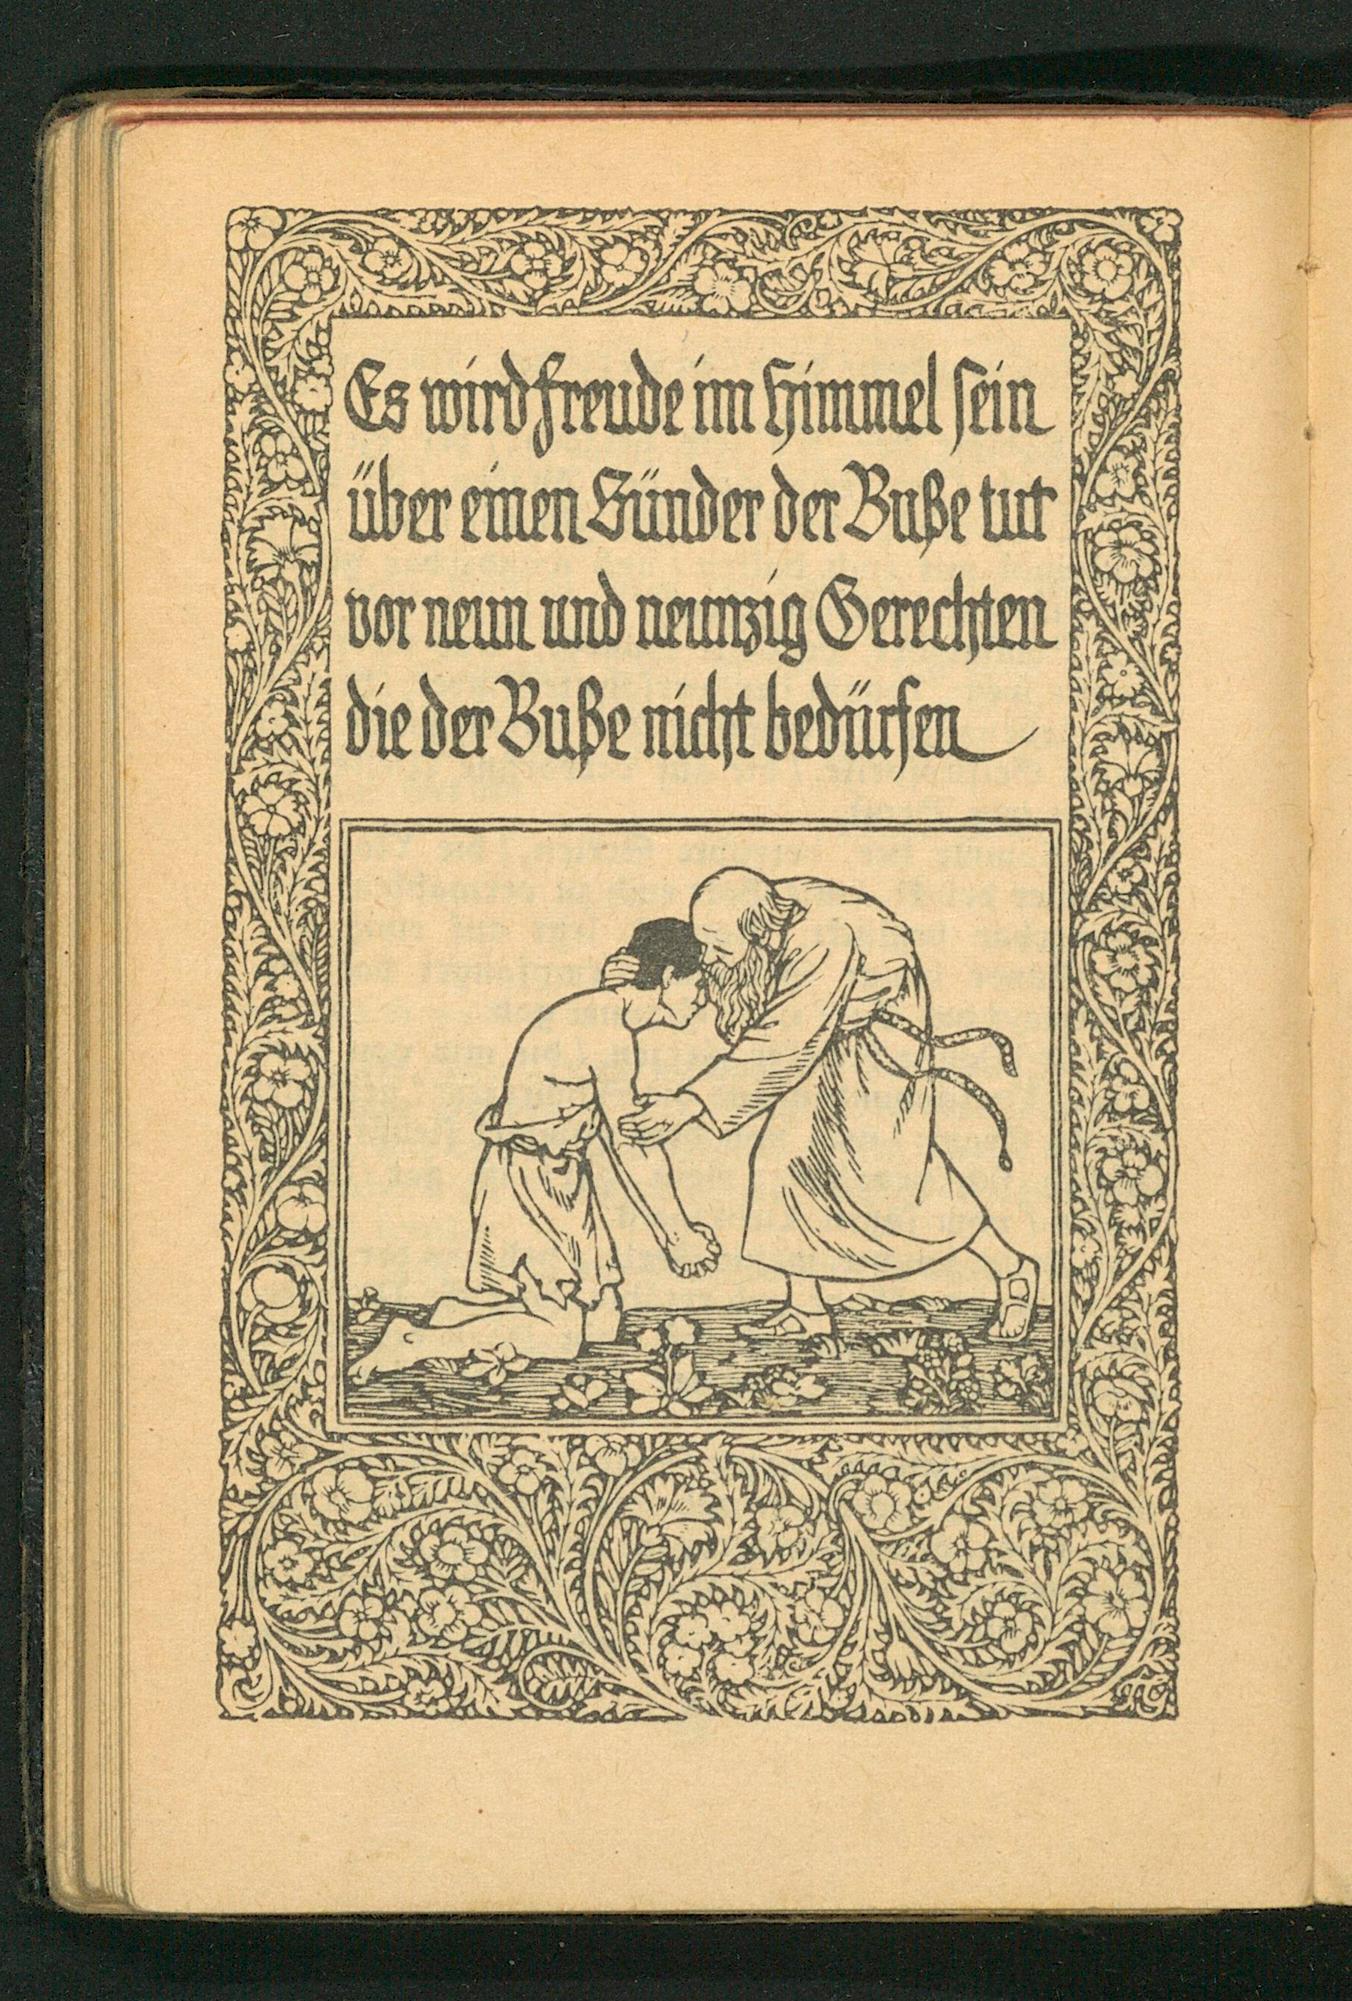 Es wird Freude im Himmel sein
über einen Sünder der Buße tut
vor neun und neunzig Gerechten
die der Buße nicht bedürfen